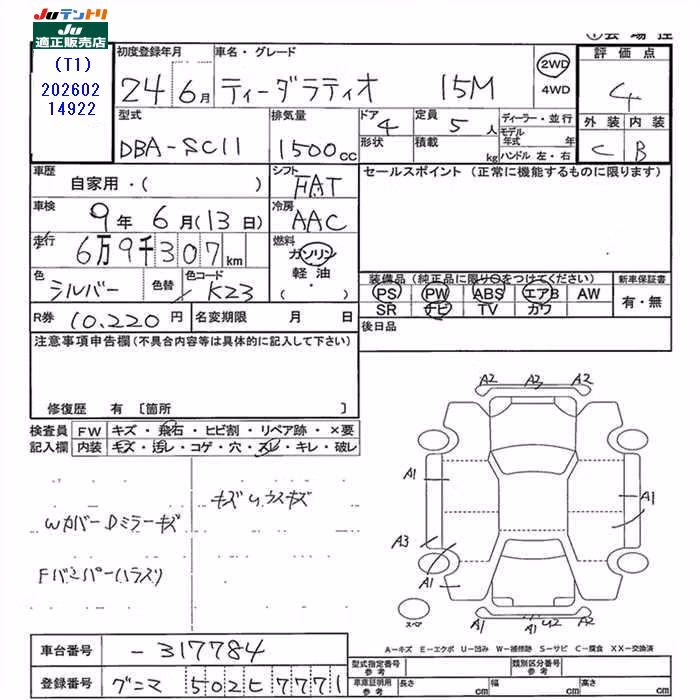 JUテントリ
JU
適正販売店
(T1)
202602
14922
初度登録年月
24 6月
車名・グレード
ティーダラティオ 15M
2WD
4WD
評価点
4
外装 内装
C B
型式
DBA-SC11
排気量
1500cc
ドア 4
形状
定員 5人
積載 kg
ディーラー・並行
モデル年式 年
ハンドル 左・右
車歴
自家用・( )
シフト
FAT
セールスポイント(正常に機能するものに限ります)
車検
9年 6月(13日)
冷房
AAC
走行
6万9千307km
燃料
ガソリン
軽油
( ・ )
色
シルバー
色替
色コード
K23
装備品(純正品に限り○をつけてください)
PS PW ABS エアB AW
SR ナビ TV カワ
新車保証書
有・無
R券 10,220円
名変期限 月 日
後日品
注意事項申告欄(不具合内容等は具体的に記入して下さい)
修復歴 有 [箇所 ]
検査員
記入欄
FW キズ・飛石・ヒビ割・リペア跡・×要
内装 キズ・汚レ・コゲ・穴・スレ・キレ・破レ
キズ U.ウスキズ
WカバーDミラーキズ
Fバンパーハラスリ
A2 A2 A2
A1
A1
A3
A1
A1 A1 U2 A2
スペア
A－キズ E－エクボ U－凹み W－補修跡 S－サビ C－腐食 XX－交換済
車台番号
－317784
登録番号
グンマ 502ヒ7771
型式指定番号
参考
類別区分番号
参考
車庫証明用
参考
長さ cm
幅 cm
高さ cm